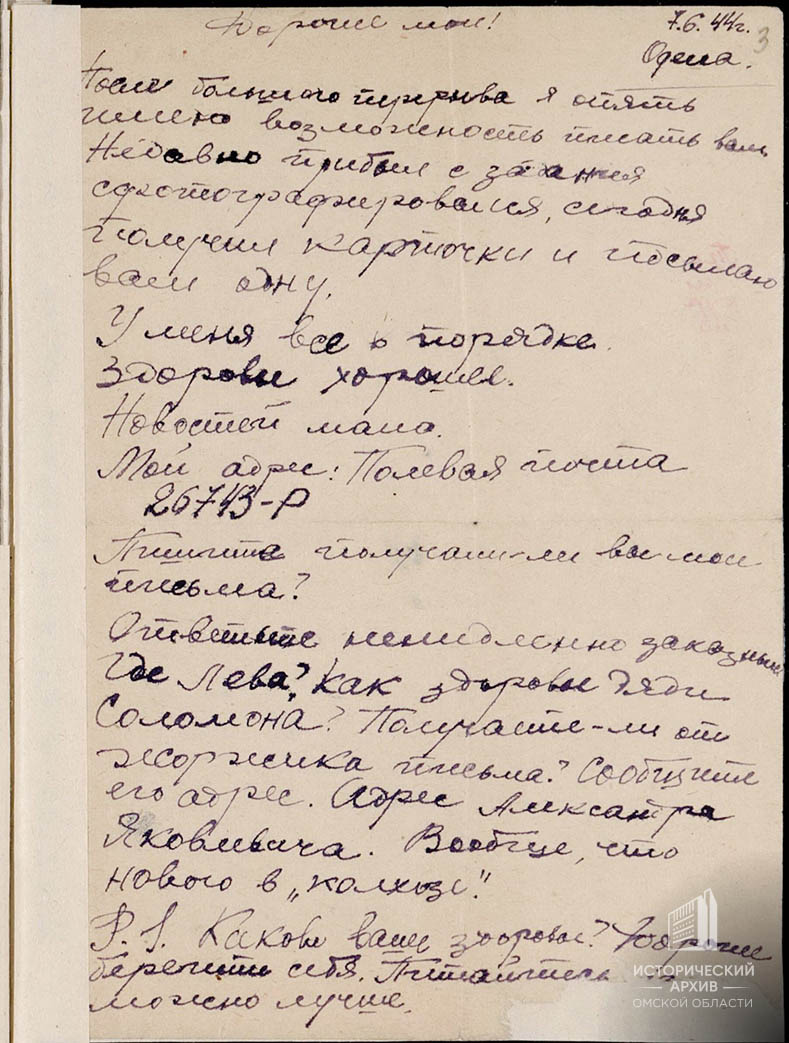 Дорогие мои!
7.6.44г.
3
Одесса.
После большого перерыва я опять
имею возможность писать вам
Недавно прибыл с задания
сфотографировался, сегодня
получил карточки и посылаю
вам одну.
У меня все в порядке.
Здоровье хорошее.
Новостей мало.
Мой адрес: Полевая почта
26743-Р
Пишите получали-ли вы мои
письма?
Ответьте немедленно заказным
Где Лева? Как здоровье дяди
Соломона? Получаете-ли от
Жоржика письма? Сообщите
его адрес. Адрес Александра
Яковлевича. Вообще, что
нового в „колхозе".
P.S. Каково ваше здоровье? Дорогие
берегите себя. Питайтесь
можно лучше.
ИСТОРИЧЕСКИЙ
АРХИВ
ОМСКОЙ ОБЛАСТИ